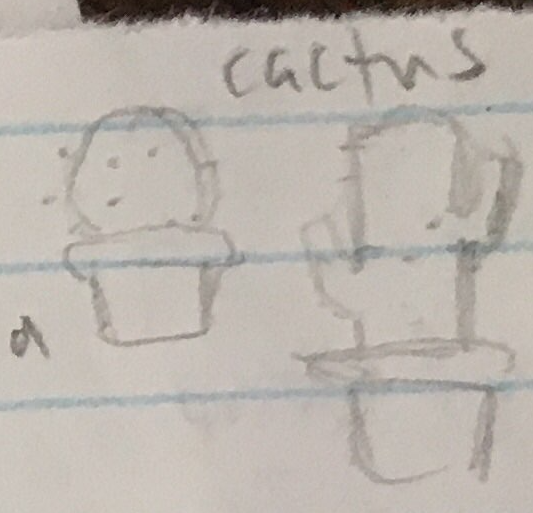 cactus
a